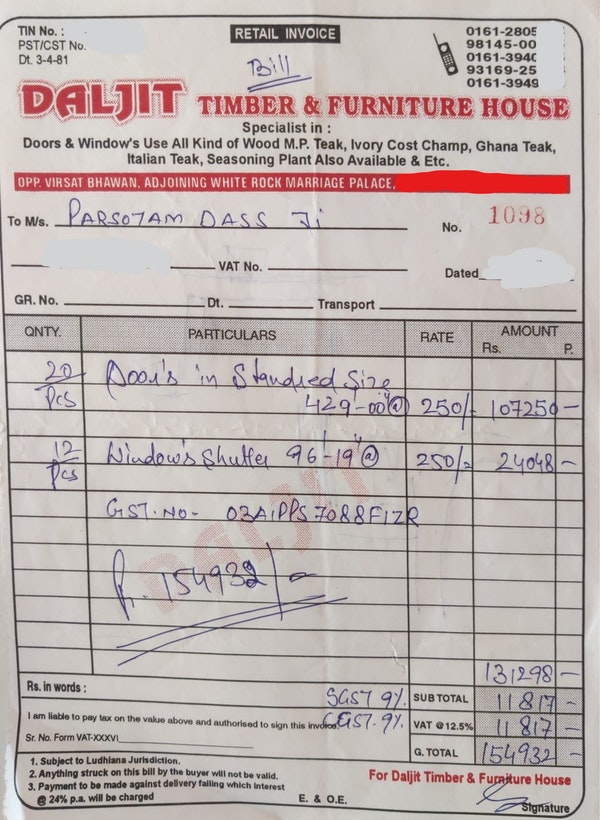 TIN No. :
RETAIL INVOICE
0161-2805
PST/CST No.
98145-00
Dt. 3-4-81
0161-3940
Bill
93169-25
0161-3949
DALJIT TIMBER & FURNITURE HOUSE
Specialist in :
Doors & Window's Use All Kind of Wood M.P. Teak, Ivory Cost Champ, Ghana Teak,
Italian Teak, Seasoning Plant Also Available & Etc.
OPP. VIRSAT BHAWAN, ADJOINING WHITE ROCK MARRIAGE PALACE,
To M/s. PARSOTAM DASS Ji
No. 1098
VAT No.
Dated
GR. No. Dt. Transport
QNTY. PARTICULARS RATE AMOUNT
Rs. P.
20 Pcs Door's in Standred Size
429-00"@ 250/- 107250-
12 Pcs Window's Shutter 96'-19"@ 250/- 24048-
GST.NO- 03AIPPS7088F1ZR
DALJIT
154932/-
131298-
Rs. in words :
SGST 9% SUB TOTAL 11817-
I am liable to pay tax on the value above and authorised to sign this invoice.
CGST. 9% VAT @12.5% 11817-
Sr. No. Form VAT-XXXVI
G. TOTAL 154932-
1. Subject to Ludhiana Jurisdiction.
2. Anything struck on this bill by the buyer will not be valid.
3. Payment to be made against delivery failing which interest
@ 24% p.a. will be charged
E. & O.E.
For Daljit Timber & Furniture House
Signature